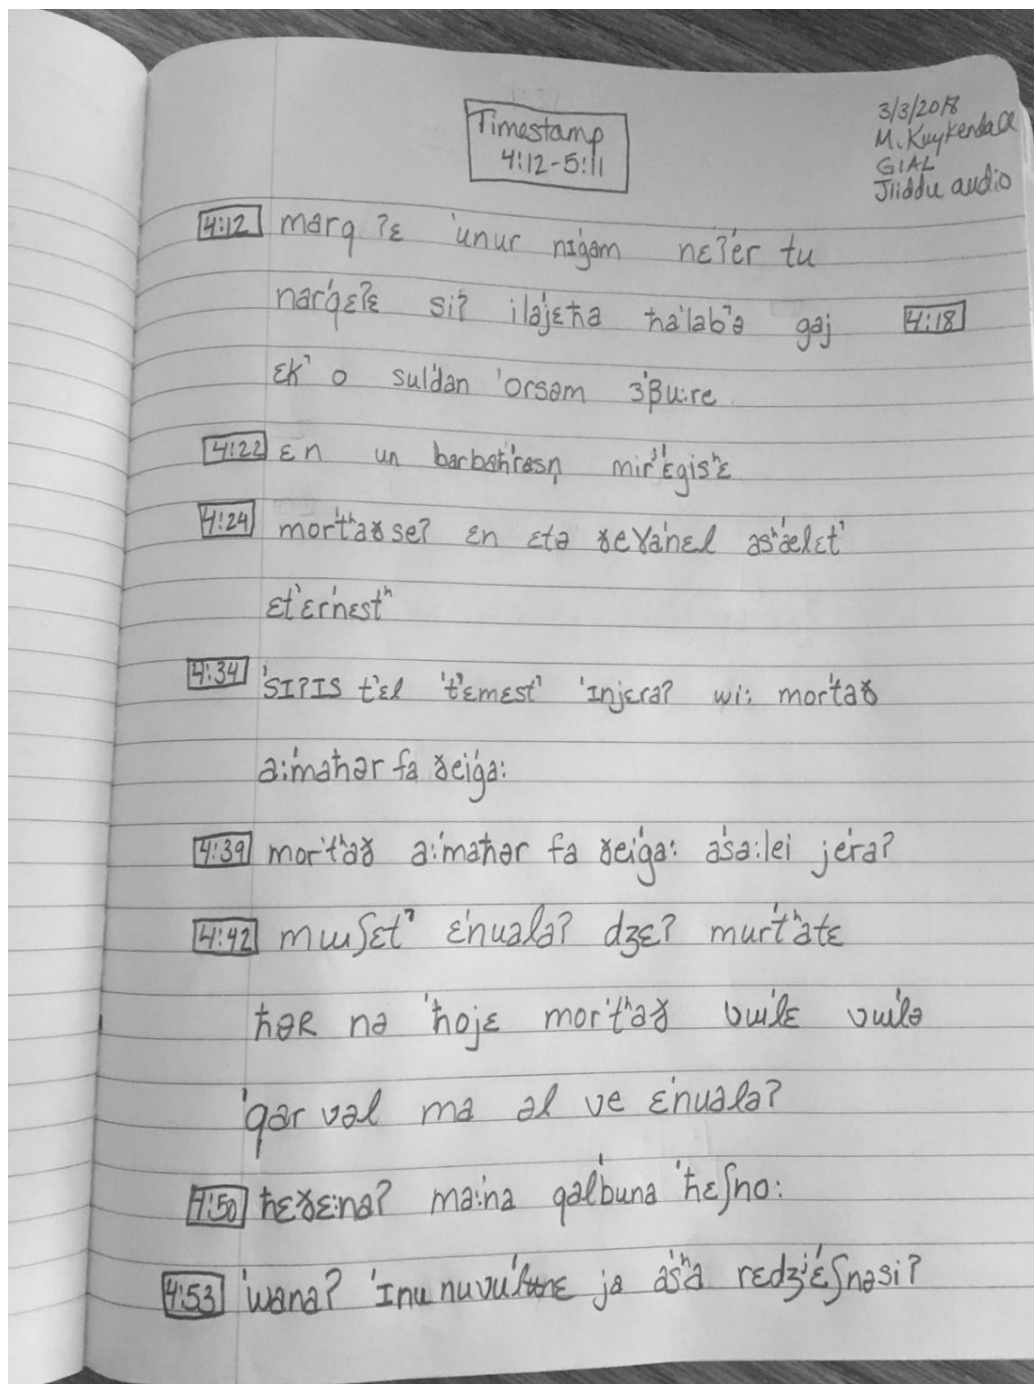 Timestamp
4:12-5:11
3/3/2018
M. Kuykendall
GIAL
Jiiddu audio
4:12 marq ʔɛ ˈunur nɪˈgam nɛˈʔer tu
narˈqɛʔɛ siʔ ilaˈjɛħa ħaˈlab̚ə gaj 4:18
ɛk̚ o sulˈdan ˈorsəm ɜˈβuːre
4:22 ɛn un barbəħˈrəsn̩ mirʲˈɛgisʰɛ
4:24 morˈtʰaɣseʔ ɛn ɛtə ɣeɣaˈnɛl əsʰˈælɛt̚
ɛt̚ɛrˈnɛstʰ
4:34 ˈsɪʔɪs t̚ɛl ˈt̚ɛmɛst̚ ˈɪnjɛraʔ wiː morˈtaɣ
aːˈmaħər fa ɣeiˈgaː
4:39 morˈtʰaɣ aːˈmaħər fa ɣeiˈgaː aˈsaːlei jeˈraʔ
4:42 mɯʃɛt̚ ɛˈnualəʔ dʒɛʔ murˈtʰatɛ
ħəʀ nə ˈħojɛ morˈtʰaɣ ʋɯˈlɛ ʋɯˈlə
ˈqar ʋəl ma əl ve ɛˈnualəʔ
4:50 ħɛɣɛːnaʔ maːˈna qalˈbuna ˈħɛʃnoː
4:53 ˈwanaʔ ˈɪnu nuvuˈ ja aˈsʰa rɛdʒʲˈɛʃnəsiʔ